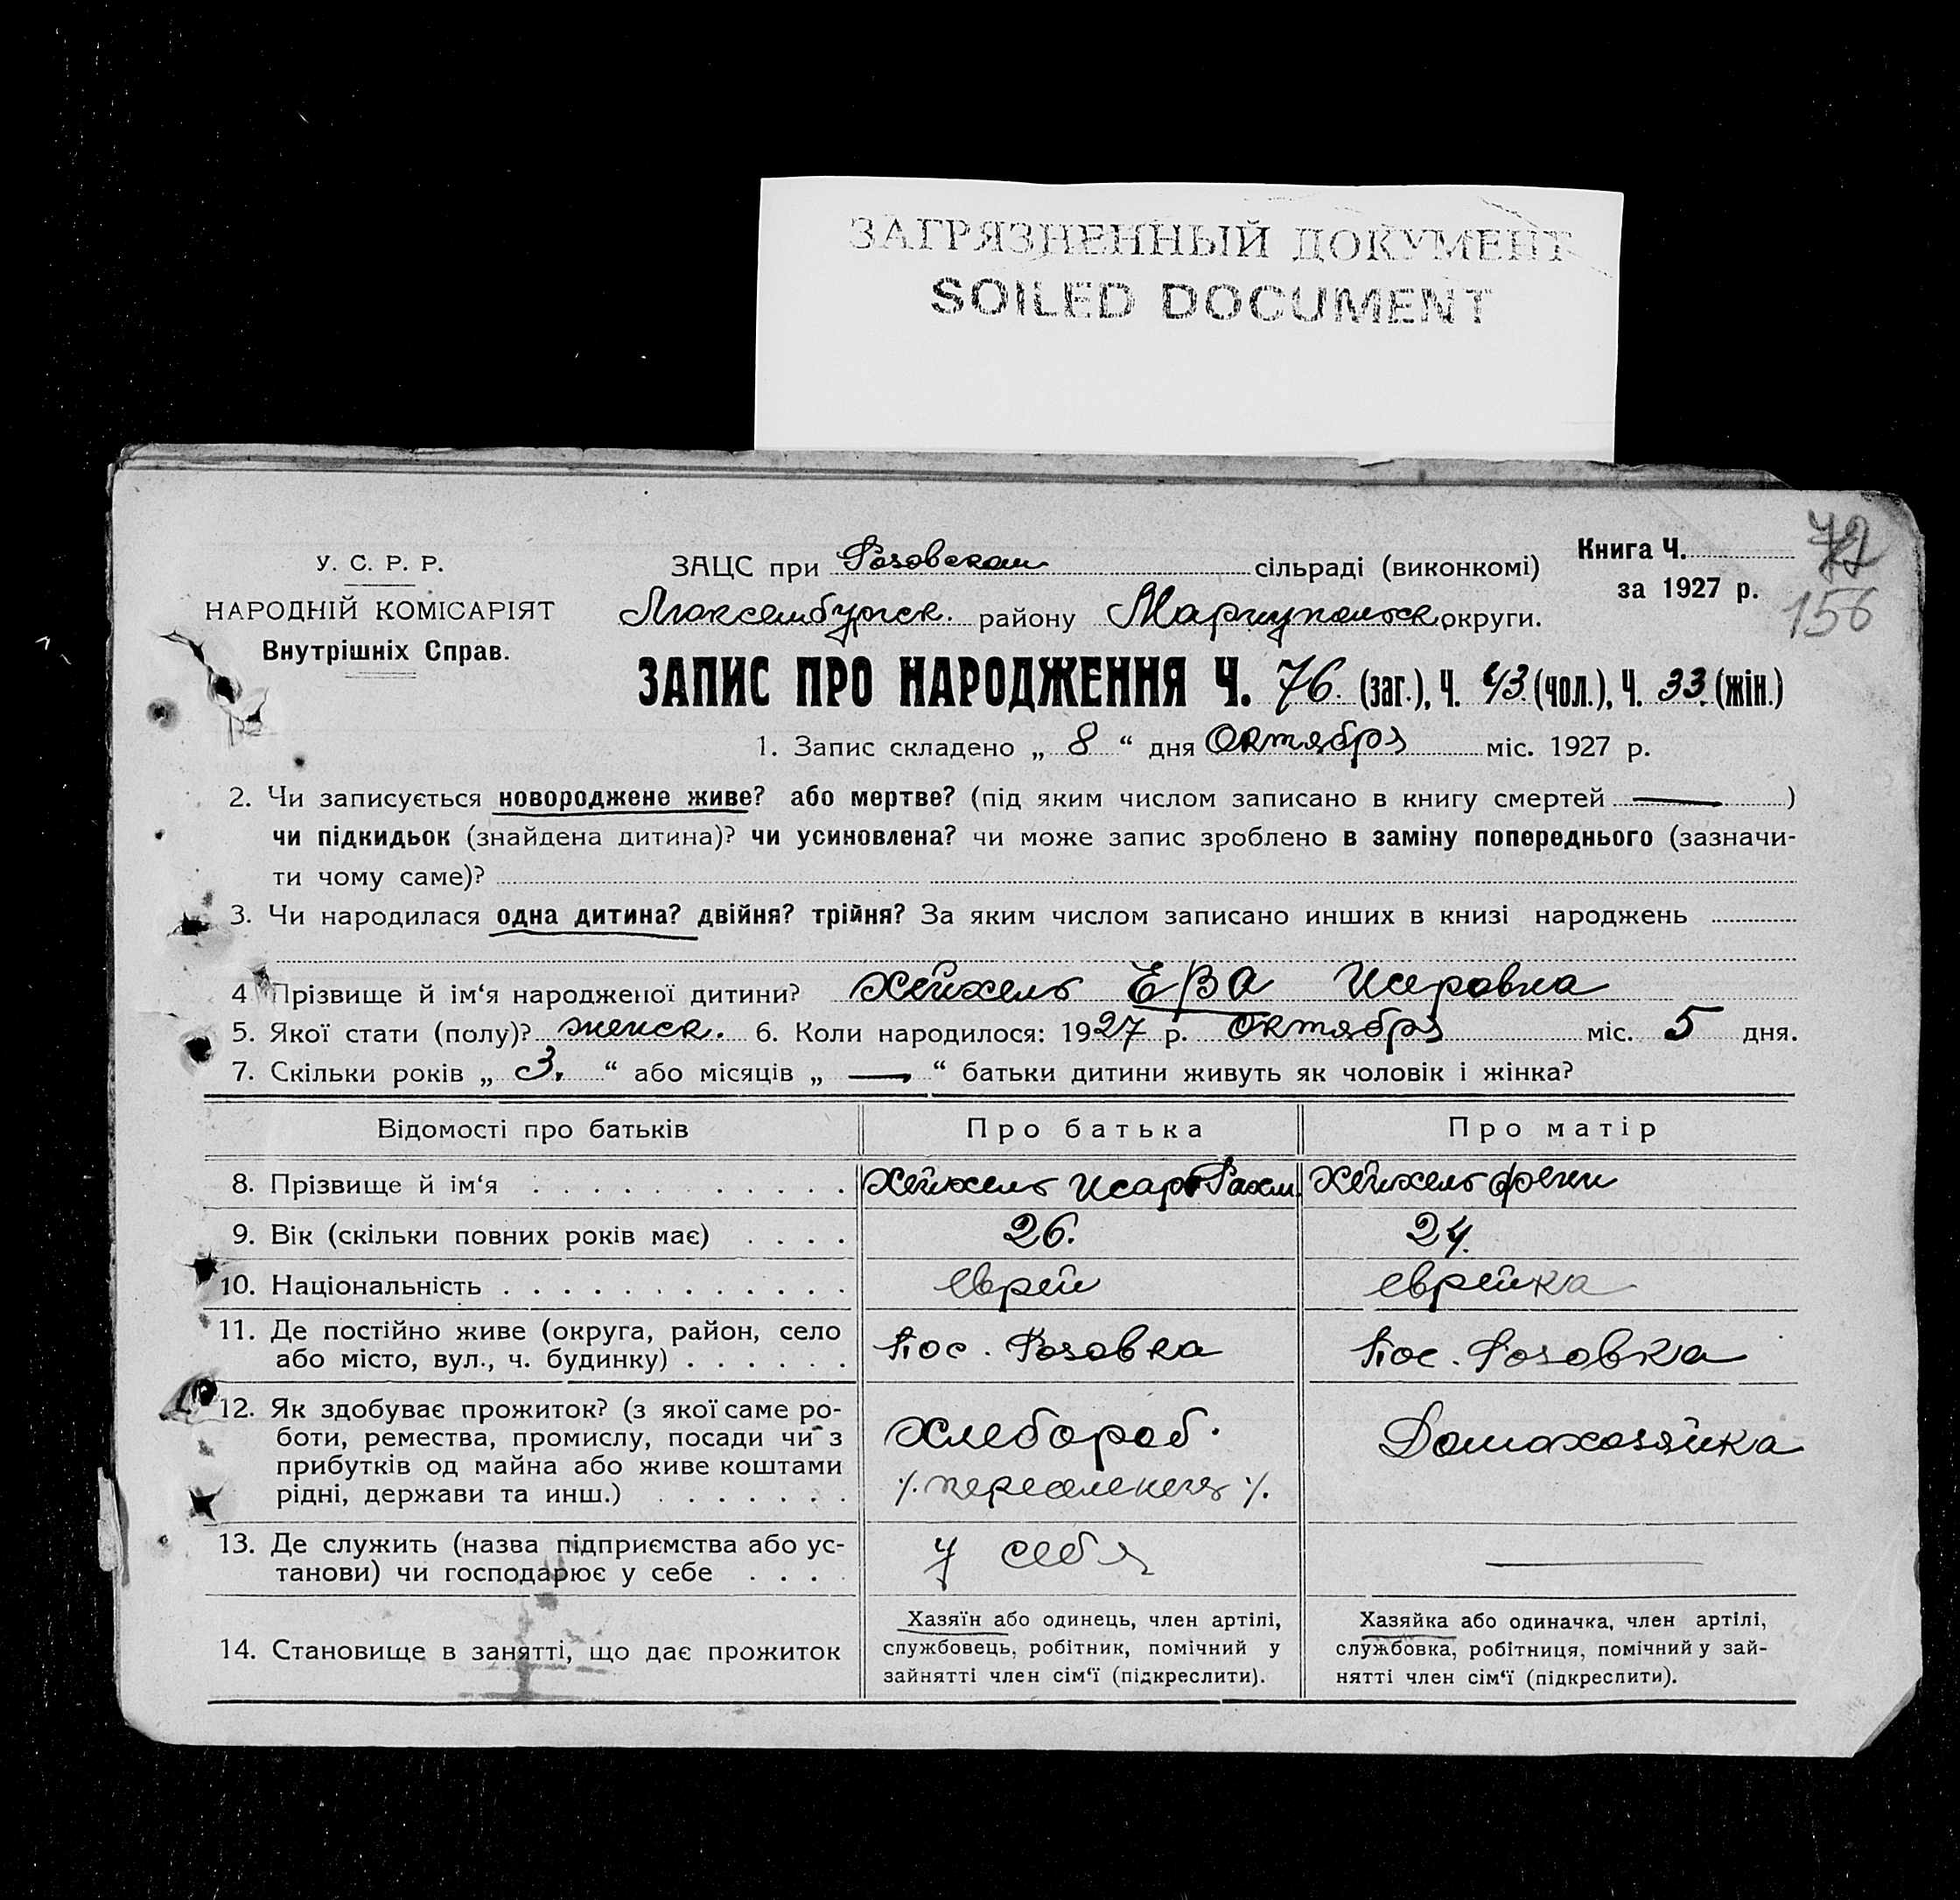 ЗАГРЯЗНЕННЫЙ ДОКУМЕНТ
SOILED DOCUMENT
У. С. Р. Р.
НАРОДНІЙ КОМІСАРІЯТ
Внутрішніх Справ.
ЗАЦС при Розовском сільраді (виконкомі)
Люксембургск. району Мариупольск. округи.
Книга Ч.
за 1927 р.
72
156
ЗАПИС ПРО НАРОДЖЕННЯ Ч. 76. (заг.), Ч. 43 (чол.), Ч. 33. (жін.)
1. Запис складено „ 8 “ дня Октября міс. 1927 р.
2. Чи записується новороджене живе? або мертве? (під яким числом записано в книгу смертей — )
чи підкидьок (знайдена дитина)? чи усиновлена? чи може запис зроблено в заміну попереднього (зазначи-
ти чому саме)?
3. Чи народилася одна дитина? двійня? трійня? За яким числом записано инших в книзі народжень
4. Прізвище й ім‘я народженої дитини? Хейхель ЕВА Исаровна
5. Якої стати (полу)? женск. 6. Коли народилося: 1927 р. Октября міс. 5 дня.
7. Скільки років „ 3. “ або місяців „ — “ батьки дитини живуть як чоловік і жінка?
Відомості про батьків Про батька Про матір
8. Прізвище й ім‘я . . . . . . . . . . . Хейхель Исар Рахм. Хейхель Фени
9. Вік (скільки повних років має) . . . . 26. 24.
10. Національність . . . . . . . . . . . . еврей еврейка
11. Де постійно живе (округа, район, село
або місто, вул., ч. будинку) . . . . . . Пос. Розовка Пос. Розовка
12. Як здобуває прожиток? (з якої саме ро-
боти, ремества, промислу, посади чи з
прибутків од майна або живе коштами
рідні, держави та инш.) . . . . . . .
Хлебороб.
/. переселенец /.
Домохозяйка
13. Де служить (назва підприємства або ус-
танови) чи господарює у себе . . . . у себя —
14. Становище в занятті, що дає прожиток
Хазяїн або одинець, член артілі,
службовець, робітник, помічний у
зайнятті член сім‘ї (підкреслити).
Хазяйка або одиначка, член артілі,
службовка, робітниця, помічний у зай-
нятті член сім‘ї (підкреслити).